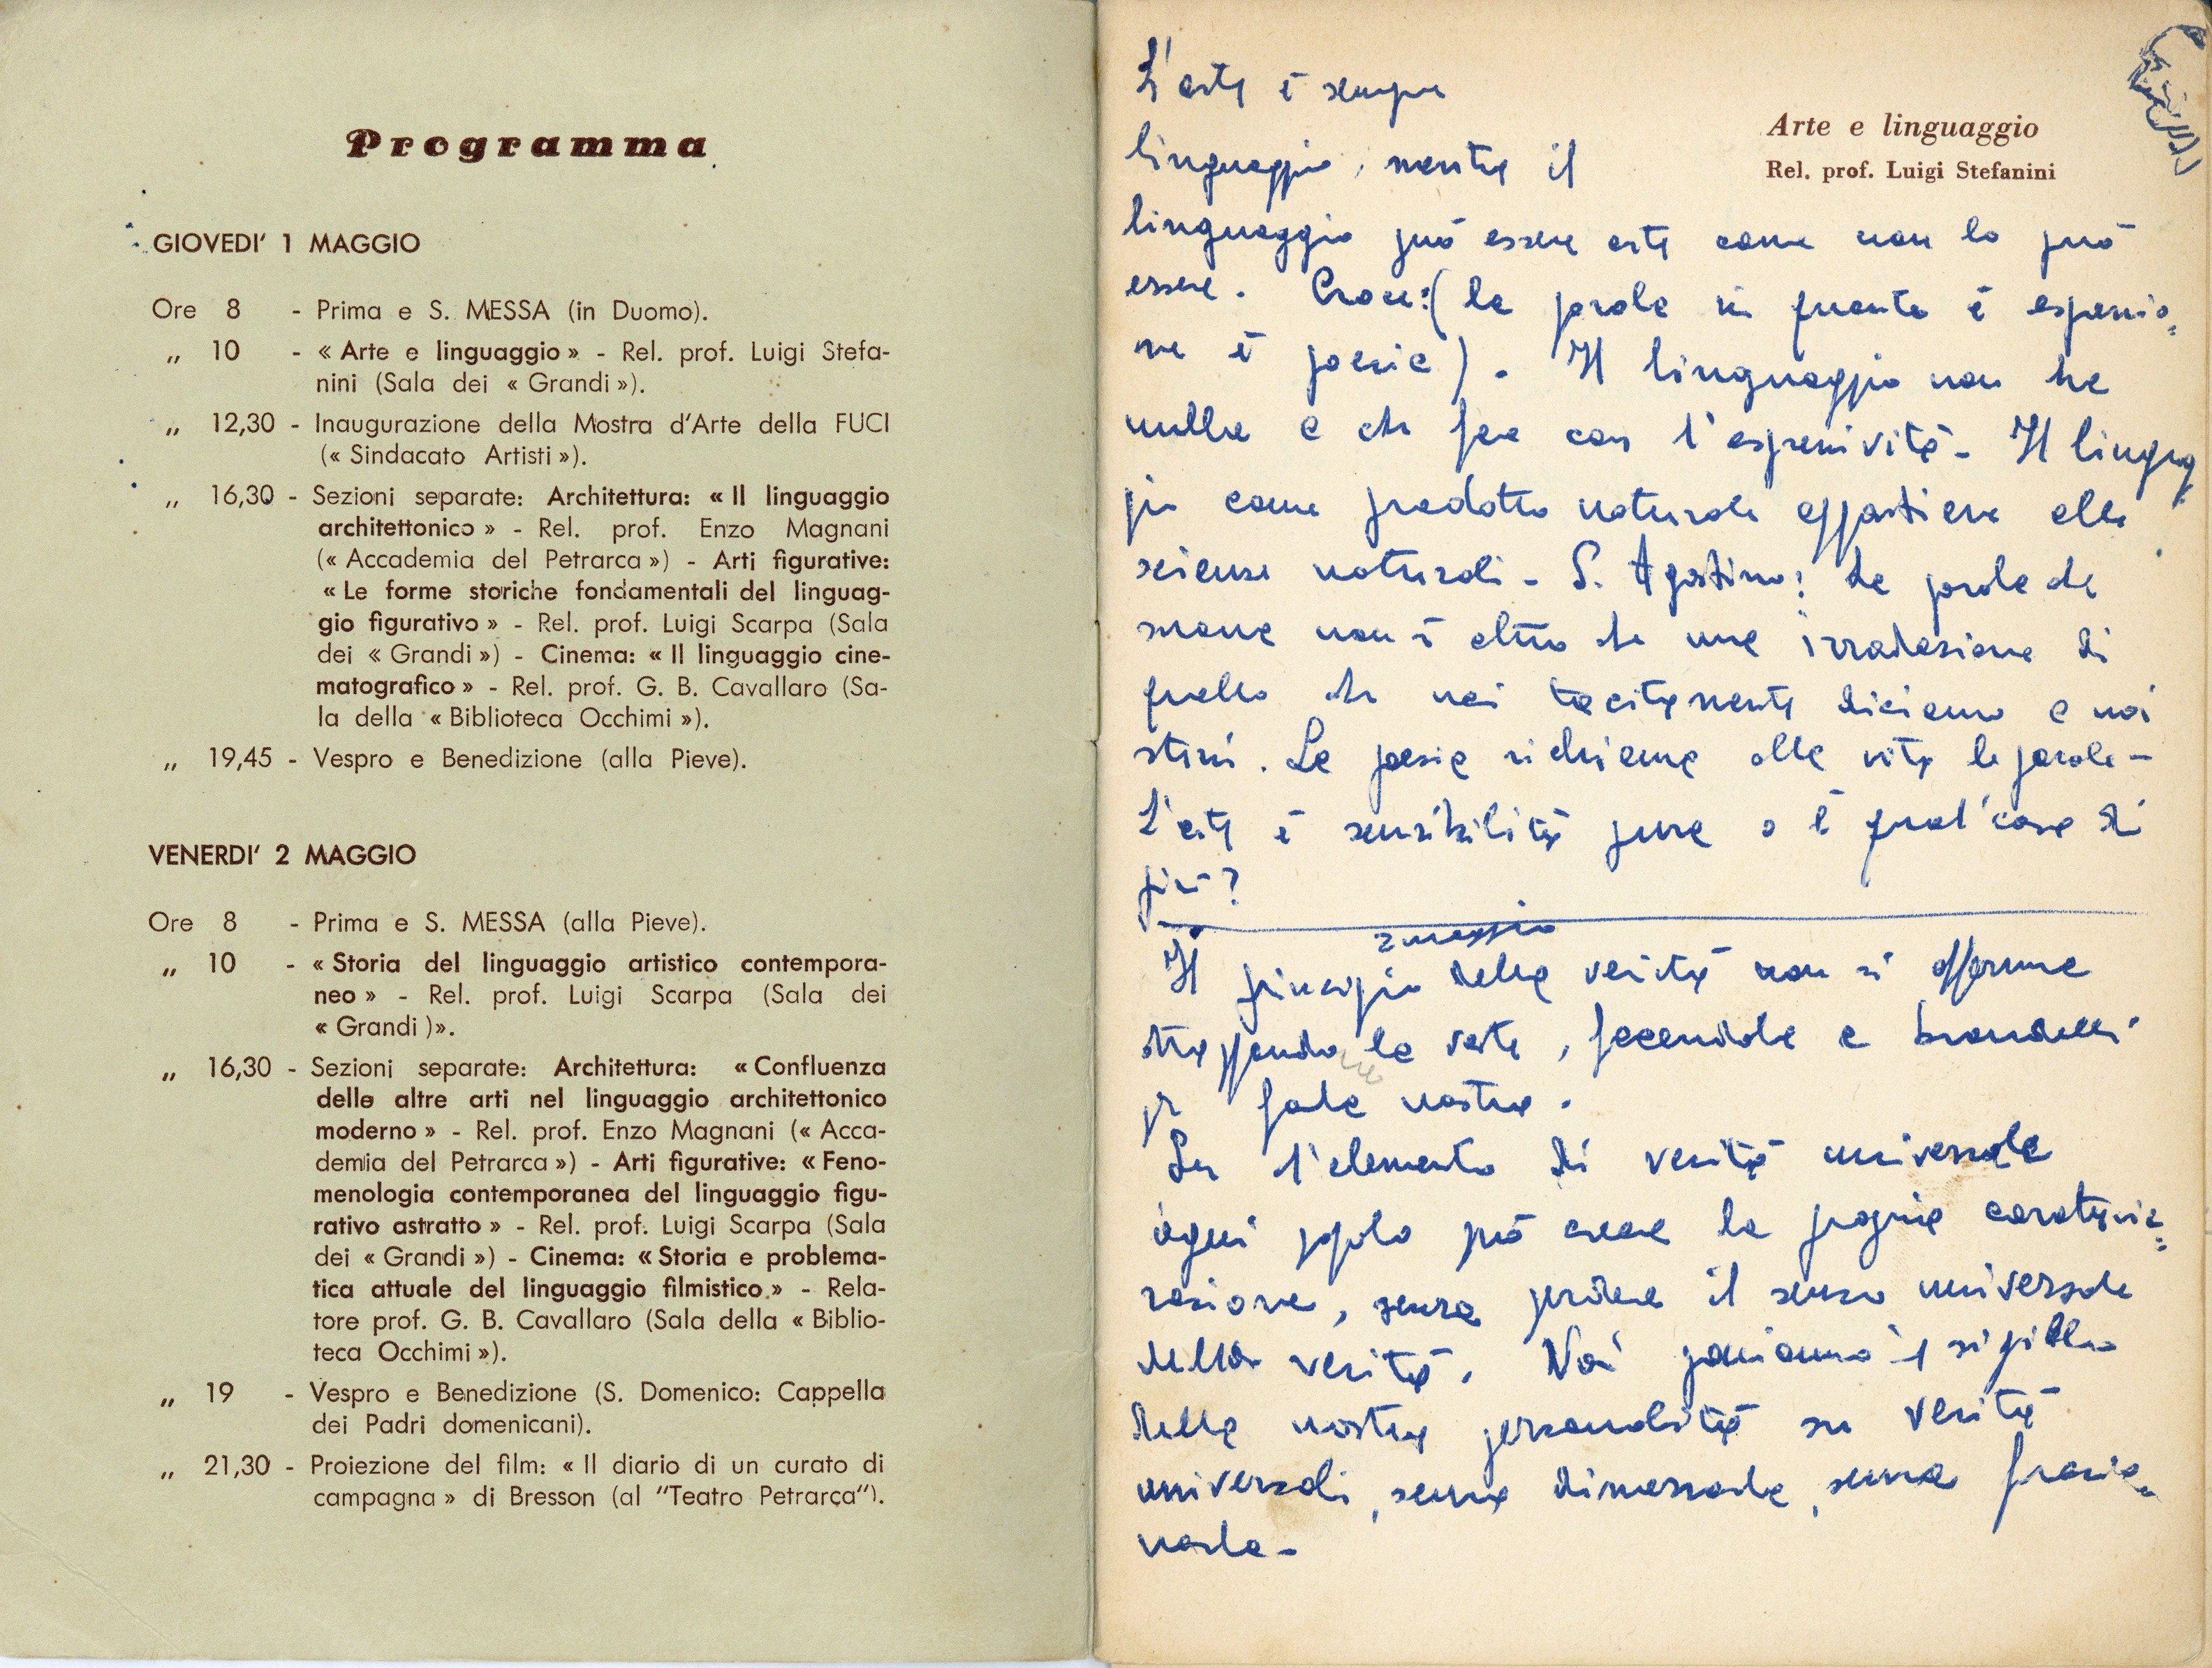 Programma
GIOVEDI' 1 MAGGIO
Ore 8 - Prima e S. MESSA (in Duomo).
„ 10 - « Arte e linguaggio » - Rel. prof. Luigi Stefa-
nini (Sala dei « Grandi »).
„ 12,30 - Inaugurazione della Mostra d'Arte della FUCI
(« Sindacato Artisti »).
„ 16,30 - Sezioni separate: Architettura: « Il linguaggio
architettonico » - Rel. prof. Enzo Magnani
(« Accademia del Petrarca ») - Arti figurative:
« Le forme storiche fondamentali del linguag-
gio figurativo » - Rel. prof. Luigi Scarpa (Sala
dei « Grandi ») - Cinema: « Il linguaggio cine-
matografico » - Rel. prof. G. B. Cavallaro (Sa-
la della « Biblioteca Occhimi »).
„ 19,45 - Vespro e Benedizione (alla Pieve).
VENERDI' 2 MAGGIO
Ore 8 - Prima e S. MESSA (alla Pieve).
„ 10 - « Storia del linguaggio artistico contempora-
neo » - Rel. prof. Luigi Scarpa (Sala dei
« Grandi )».
„ 16,30 - Sezioni separate: Architettura: « Confluenza
delle altre arti nel linguaggio architettonico
moderno » - Rel. prof. Enzo Magnani (« Acca-
demia del Petrarca ») - Arti figurative: « Feno-
menologia contemporanea del linguaggio figu-
rativo astratto » - Rel. prof. Luigi Scarpa (Sala
dei « Grandi ») - Cinema: « Storia e problema-
tica attuale del linguaggio filmistico » - Rela-
tore prof. G. B. Cavallaro (Sala della « Biblio-
teca Occhimi »).
„ 19 - Vespro e Benedizione (S. Domenico: Cappella
dei Padri domenicani).
„ 21,30 - Proiezione del film: « Il diario di un curato di
campagna » di Bresson (al "Teatro Petrarca").
Arte e linguaggio
Rel. prof. Luigi Stefanini
L'arte è sempre
linguaggio, mentre il
linguaggio può essere arte come non lo può
essere. Croce: (la parola in quanto è espressio=
ne è poesia). Il linguaggio non ha
nulla a che fare con l'espressività - Il linguag=
gio come prodotto naturale appartiene alle
scienze naturali - S. Agostino: La parola che
suona non è altro che una irradiazione di
quello che noi tacitamente diciamo a noi
stessi. La poesia richiama alla vita le parole -
L'arte è sensibilità pura o è qual'cosa di
più?
2 maggio
Il principio della verità non si afferma
strappando la veste, facendola a brandelli
per farla nostra.
Per l'elemento di verità universale
ogni popolo può creare la propria caratteriz=
zazione, senza perdere il senso universale
della verità. Noi poniamo il sigillo
della nostra personalità su verità
universali, senza dimezzarla, senza frazio=
narla -